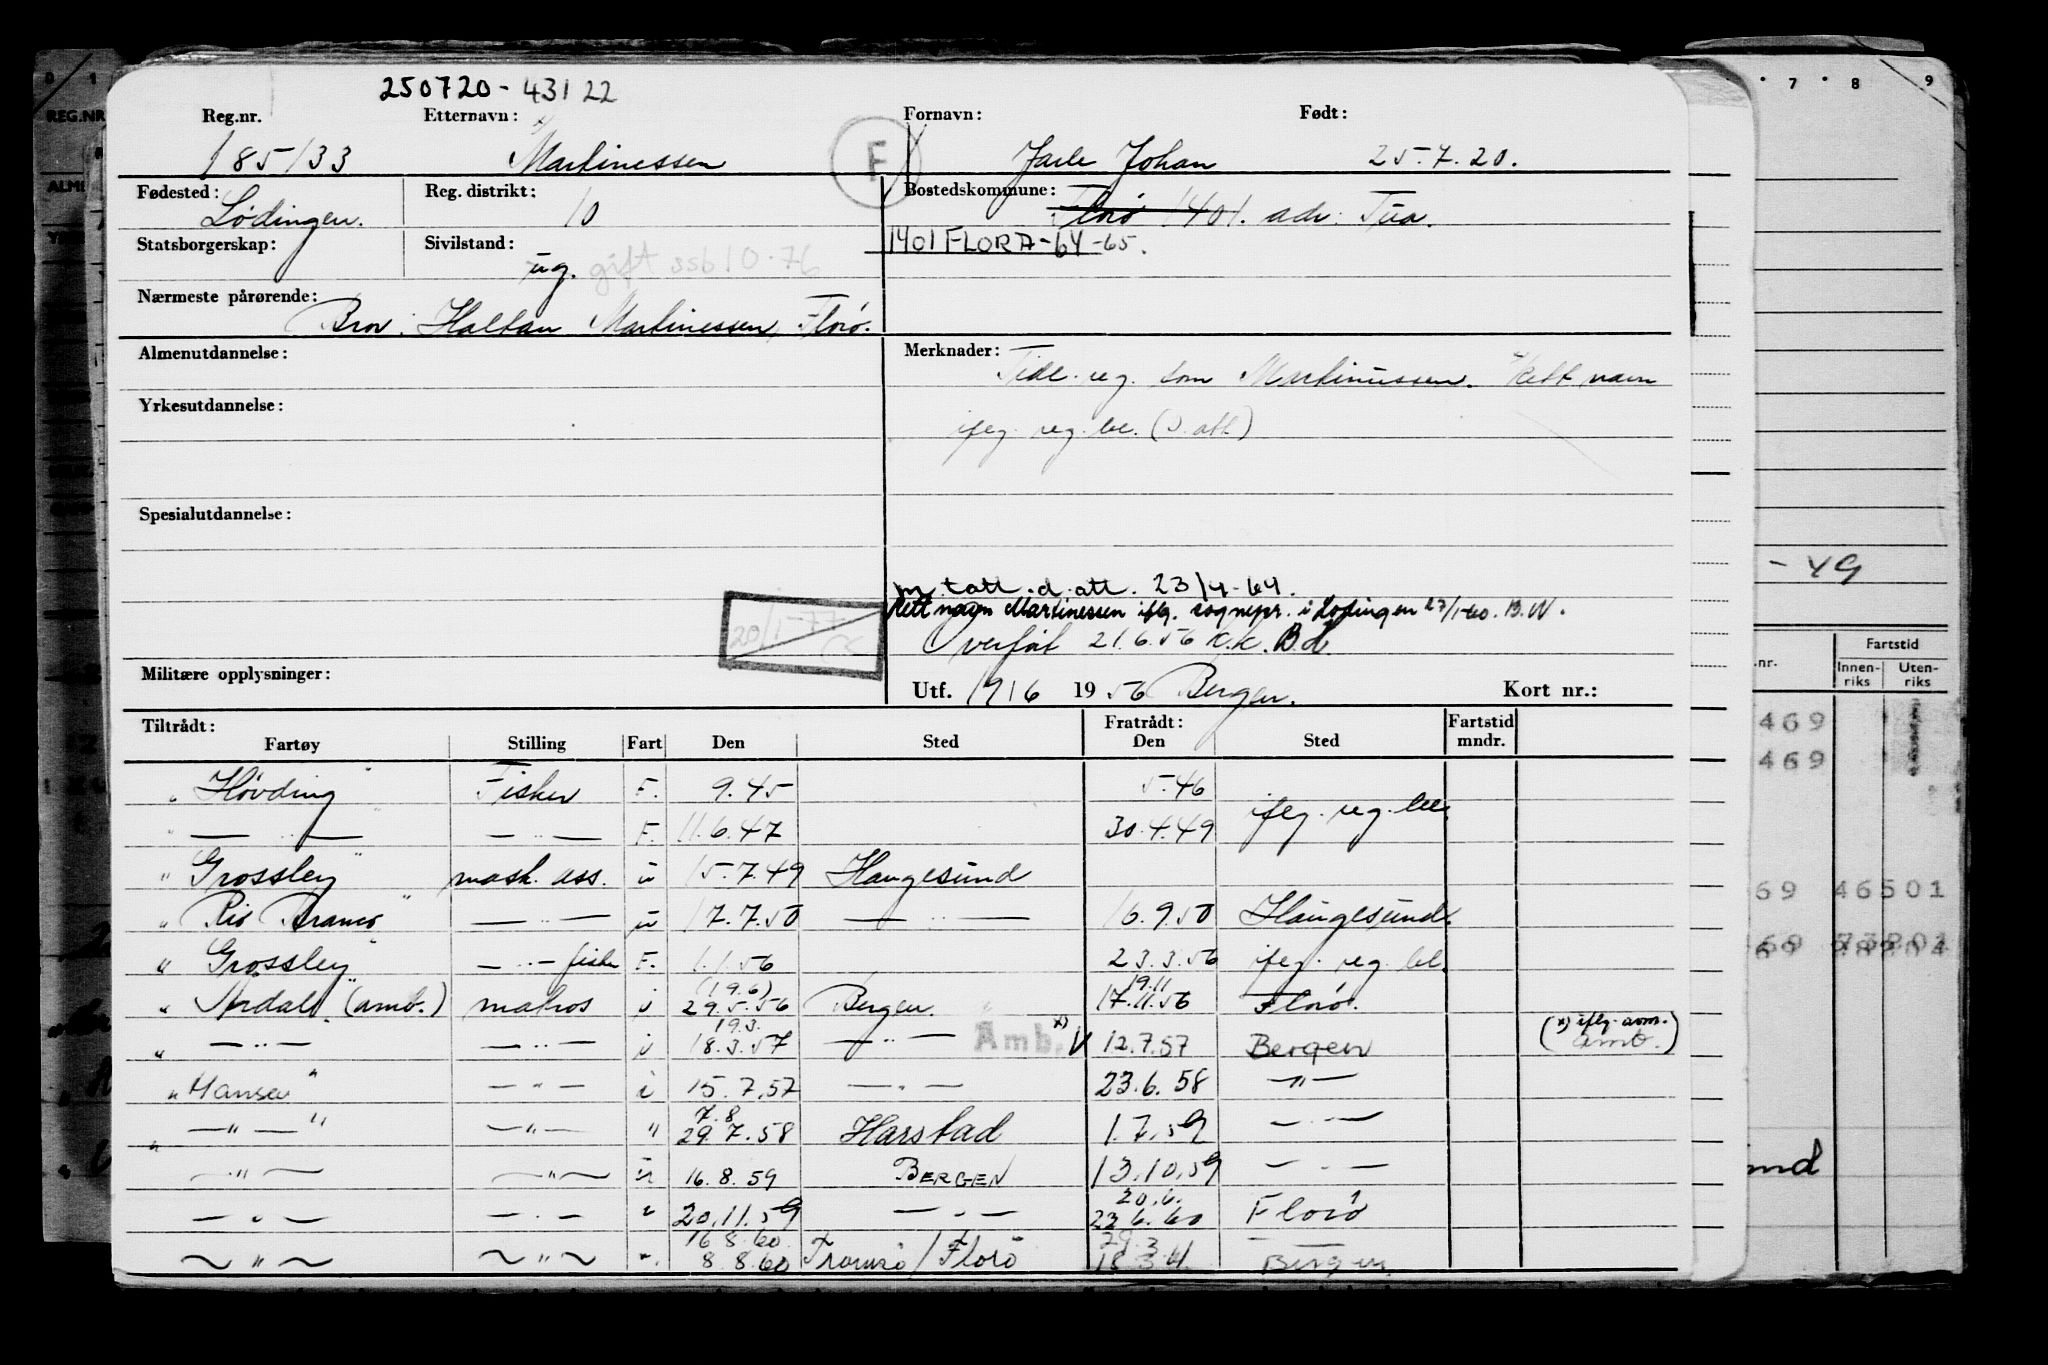 250720-43122
Reg.nr. Etternavn: Fornavn: Født:
185133 Martinessen F Jarle Johan 25.7.20.
Fødested: Reg. distrikt: Bostedskommune:
Lødingen. 10 Florø 1401. adr: Tua.
Statsborgerskap: Sivilstand: 1401 FLORA-64-65.
ug. gift 10.76
Nærmeste pårørende:
Bror: Halfdan Martinessen, Florø.
Almenutdannelse: Merknader: Tidl. reg. som Martinussen. Rett navn
Yrkesutdannelse: ifлg. reg. bl. (D. att.)
Spesialutdannelse:
m. tatt. d. att. 23/4-64.
Rett navn Martinessen iflg. sognepr. i Lødingen 27/1-60. B.W.
20/1-77. Overført 21.6.56 K.k. B.d.
Militære opplysninger: Utf. 19/6 1956 Bergen. Kort nr.:
Tiltrådt: Fratrådt: Fartstid
Fartøy Stilling Fart Den Sted Den Sted mndr.
"Høvding" Fisker F. 9.45 5.46
" — " — " — " — F. 11.6.47 30.4.49 iflg. reg. bl.
"Grossley" mask. ass. u 15.7.49 Haugesund
"Rio Branco" — " — u 17.7.50 — " — 16.9.50 Haugesund.
"Grossley" — " — fisker F. 1.1.56 23.3.56 iflg. reg. bl.
(19.6) 19.11
"Årdal" (amb.) matros i 29.5.56 Bergen. 17.11.56 Florø.
19.3.
" — " — — " — i 18.3.57 — " — Amb. x) V 12.7.57 Bergen (x) iflg. avm. amb.)
"Hansa" — " — i 15.7.57 — " — 23.6.58 — " —
7.8
" — " — " — " — " 29.7.58 Harstad 1.7.59 — " —
— " — — " — 16.8.59 BERGEN 13.10.59 — " —
20.6.
— " — — " — " 20.11.59 — " — 22.6.60 Florø
16.8.60. 29.3
— " — — " — " 8.8.60 Tromsø/Florø 18.3.61 Bergen
0 1
REG.NR
ALM
7 8 9
- 49
.nr. Fartstid
Innen-riks Uten-riks
469
469
69 46501